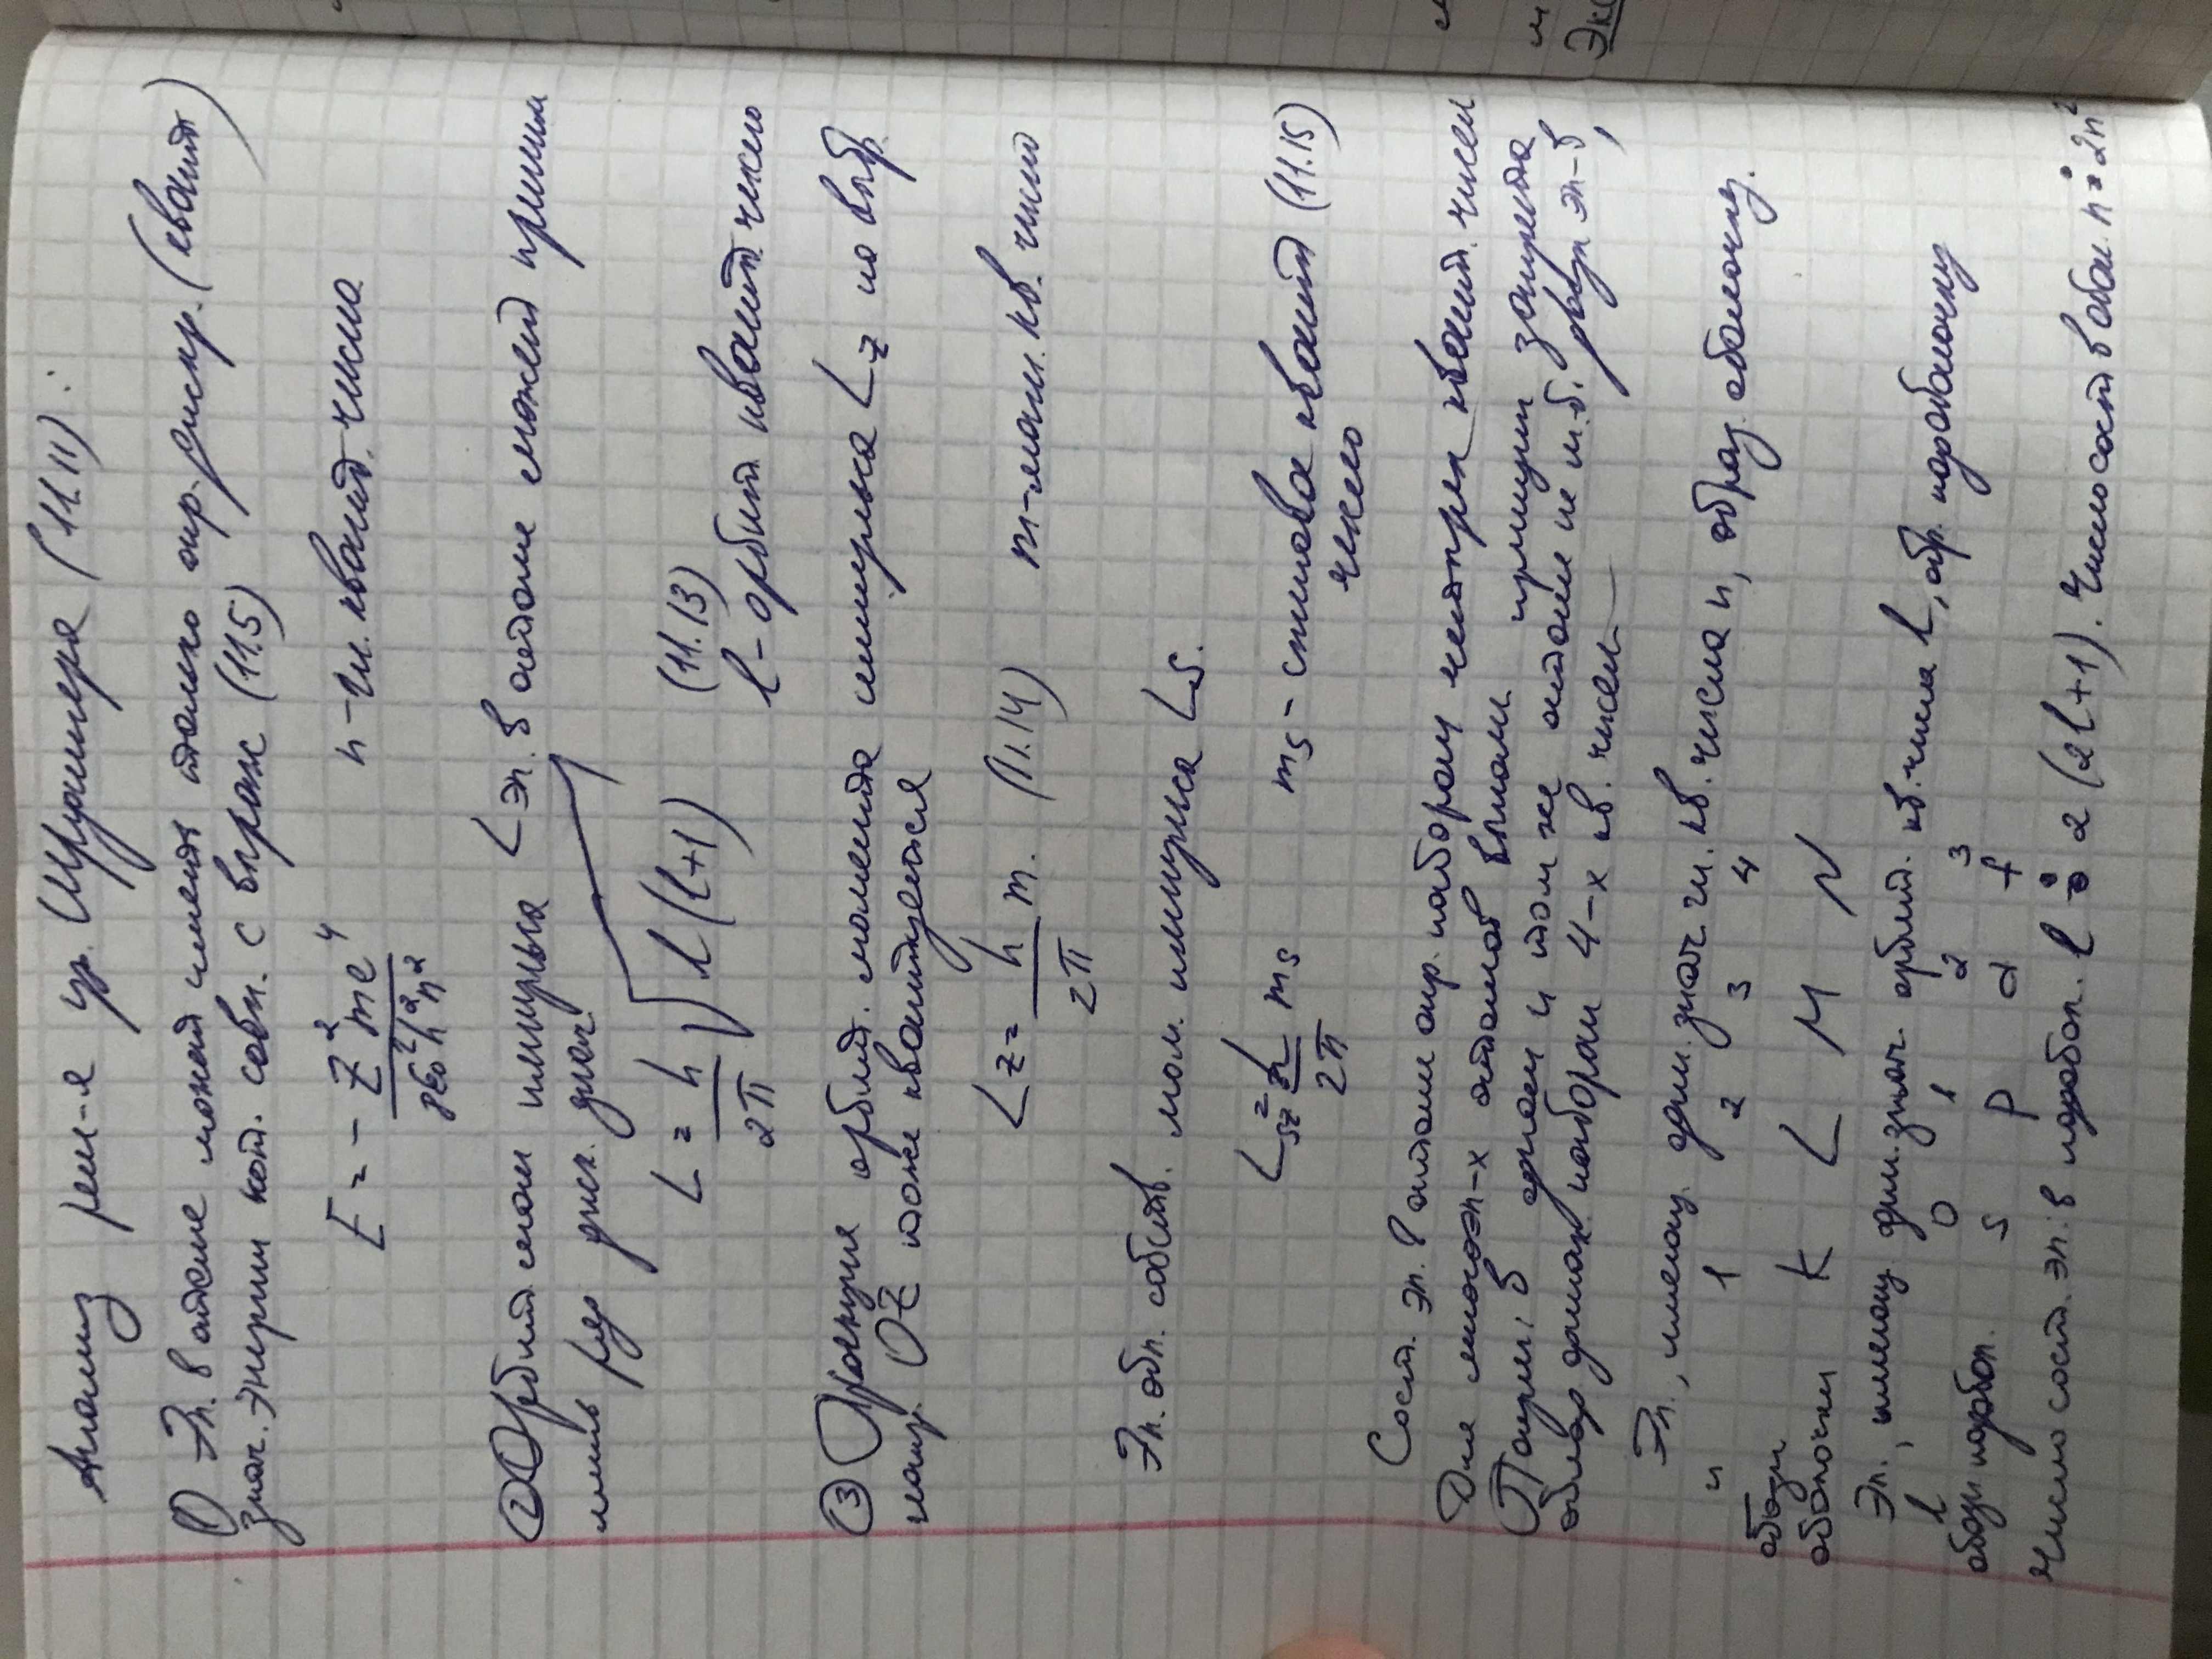 Анализ реш-я ур. Шрудингера (11.11):
① Эл. в атоме может иметь только опр. дискр. (квант)
знач. Энергии кот. совп. с выраж (11.5)
E = - Z²me⁴ / 8ε₀²h²n²    n - гл. квант. число
② Орбит. мом импульса L эл. в атоме может приним
лишь ряд диск. знач.
L = h/2π √l(l+1)    (11.13)
l - орбит. квант. число
③ Проекция орбит. момента импульса Lz на выбр.
напр. OZ тоже квантуется
Lz = h/2π m.    (11.14)    m - магн. кв. число
Эл. обл. собств. мом. импульса Ls.
Lsz = h/2π ms    ms - спинова квант (11.15)
число
Сост. эл. в атоме опр. набором четырех квант. чисел
Для многоэл-х атомов выполн. принцип запрета
Паули: в одном и том же атоме не м.б. эл-в,
облад. динак. набором 4-х кв. чисел
Эл., имеющ. один. знач. гл. кв. числа n, образ. оболочку.
n    1    2    3    4
обозн
оболочки    K    L    M    N
Эл., имеющ. один. знач. орбит. кв. числа l, обр. подоболочку
l    0    1    2    3
обозн подобол.    s    p    d    f
Число сост. эл. в подобол. l : 2(2l+1). Число сост в обол. n : 2n²